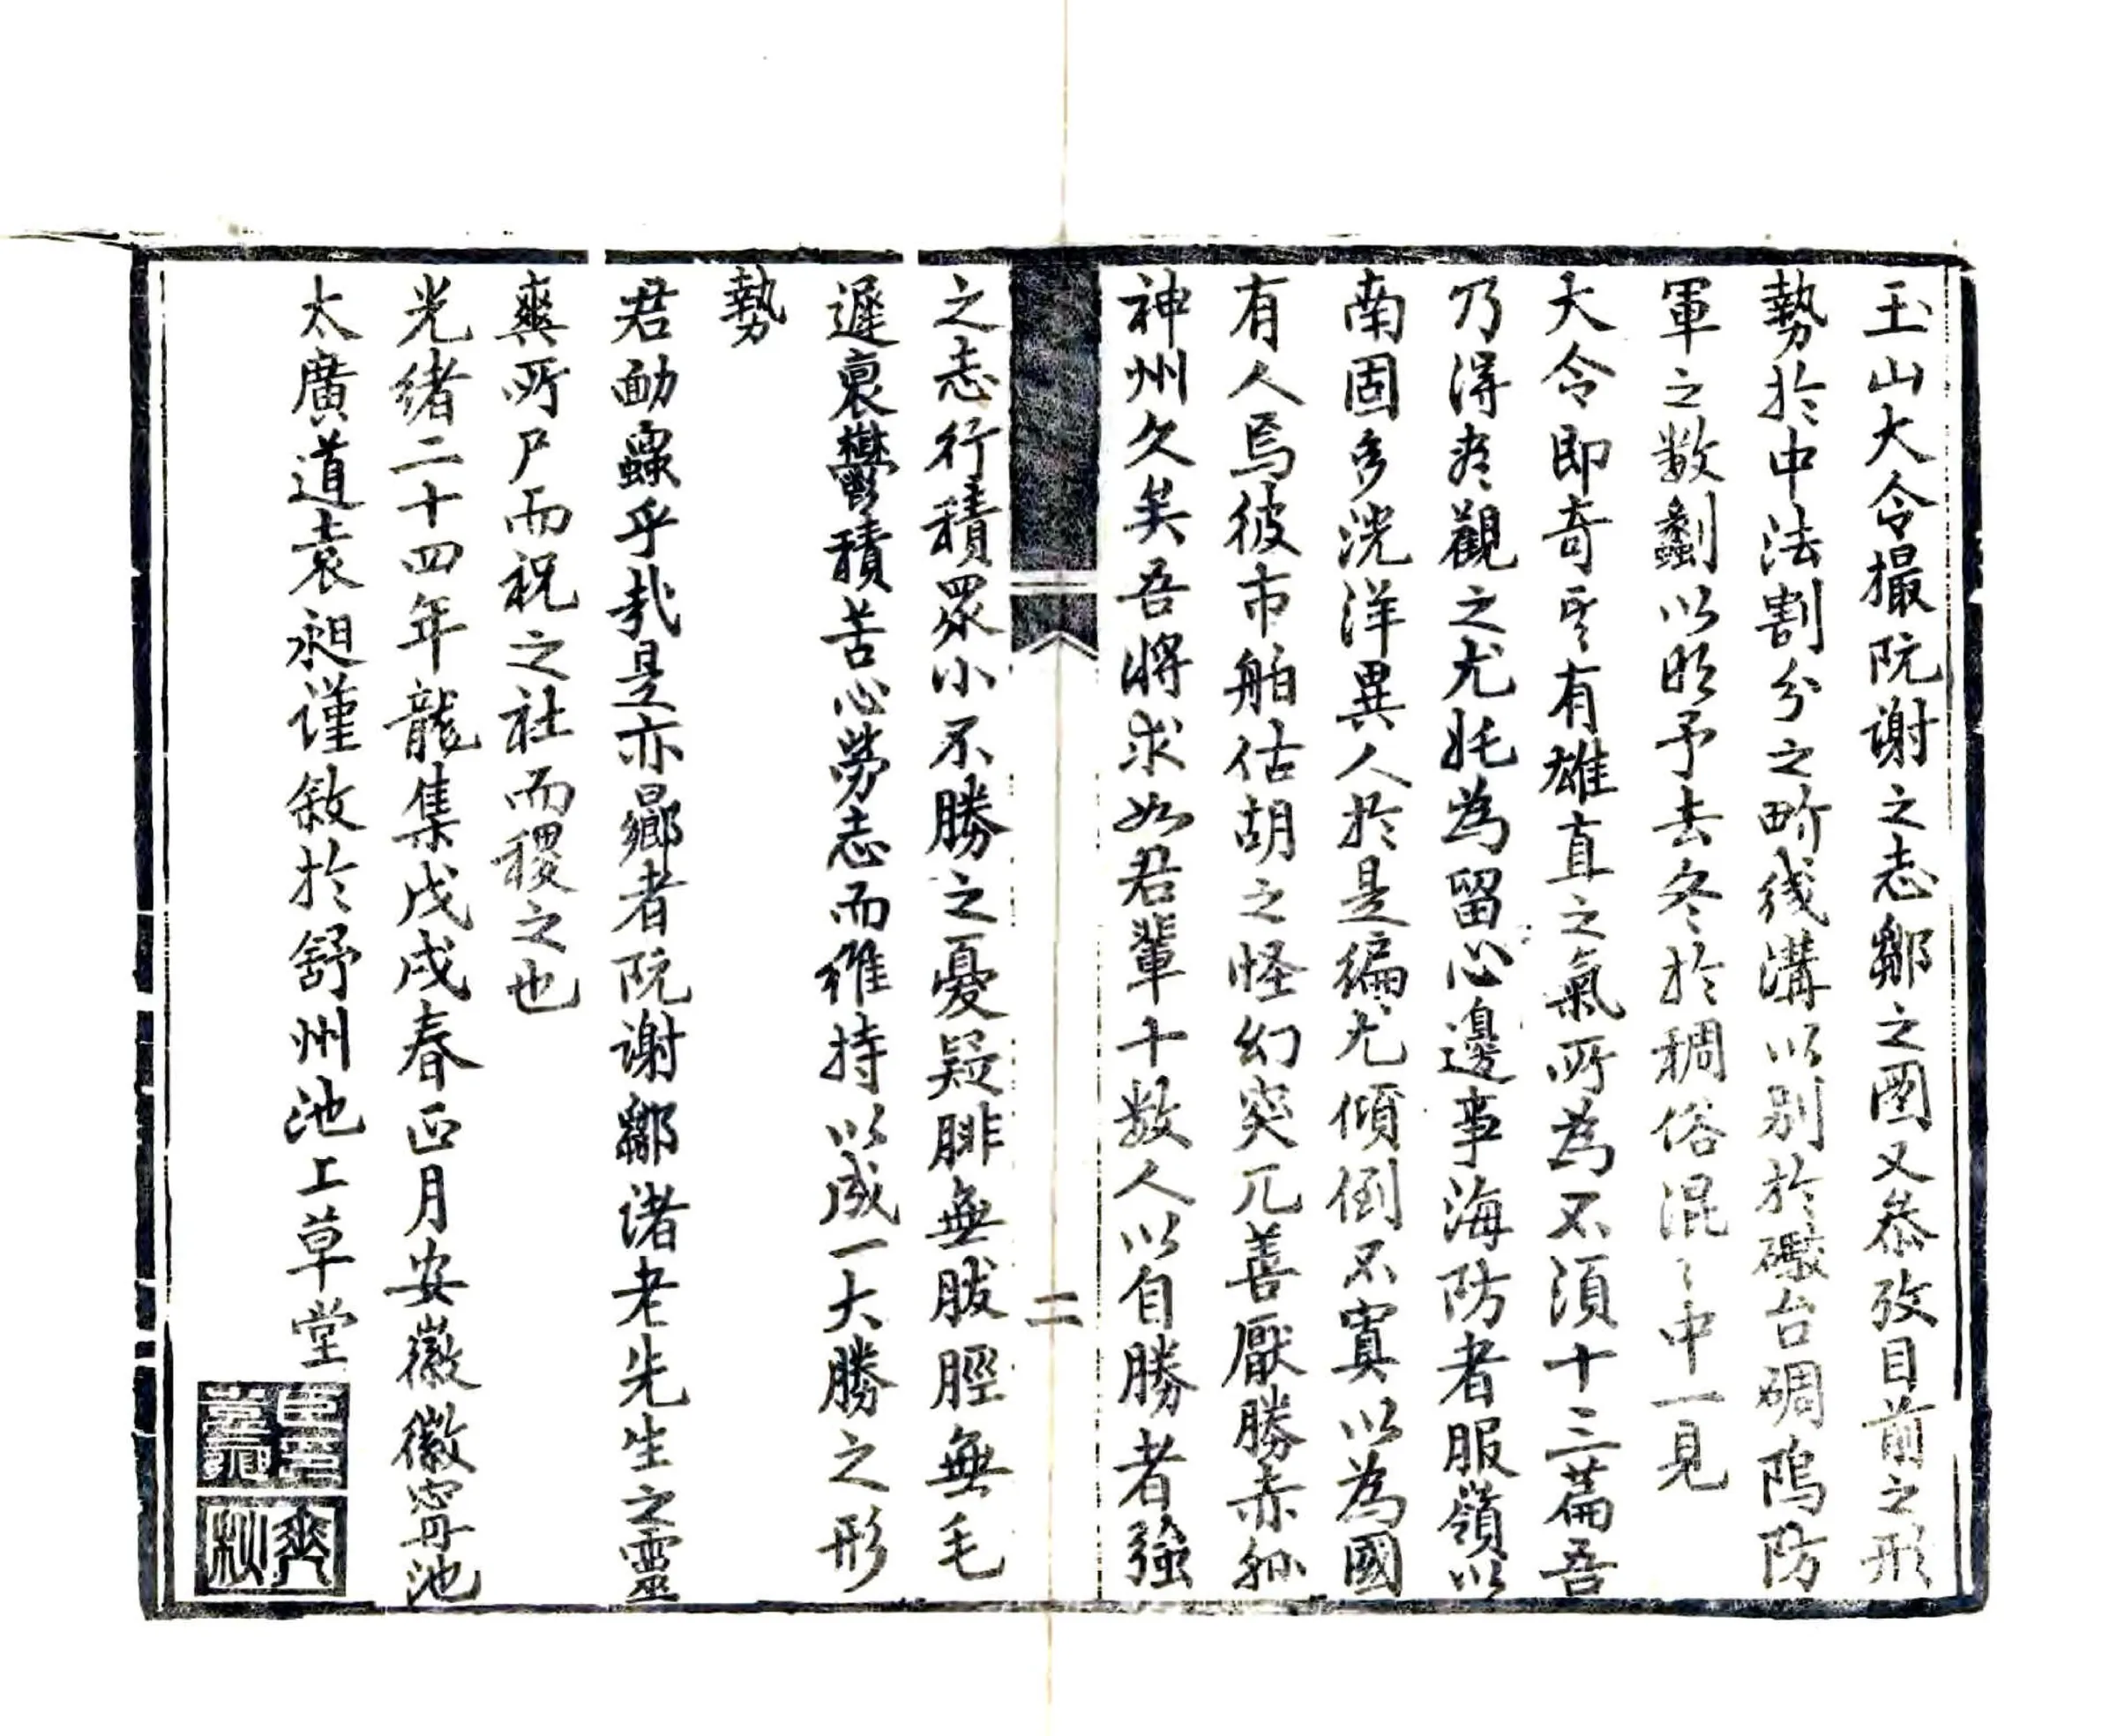 玉山大令撮阮謝之志鄒之圖又叅攷目前之形
勢於中法割分之畍綫溝以别於礮台碉隖防
軍之数劙以昀予去冬於稠俗混〻中一見
大令即奇㞢有雄直之氣所為不須十三篇吾
乃得君觀之尤妩為留心邊事海防者服嶺以
南固多洸洋異人於是編尤傾倒不寘以為國
有人焉彼市舶估胡之怪幻突兀善厭勝赤縣
神州久矣吾將求如君輩十数人以自勝者強
之志行積眾小不勝之憂疑腓無胈脛無毛
遲裹鬱積苦心勞志而維持以成一大勝之形
勢
君勔蠠乎哉是亦曏者阮謝鄒诸老先生之靈
爽所尸而祝之社而稷之也
光绪二十四年龍集戊戌春正月安徽徽寧池
太廣道袁昶谨敘於舒州池上草堂
二
爽秋